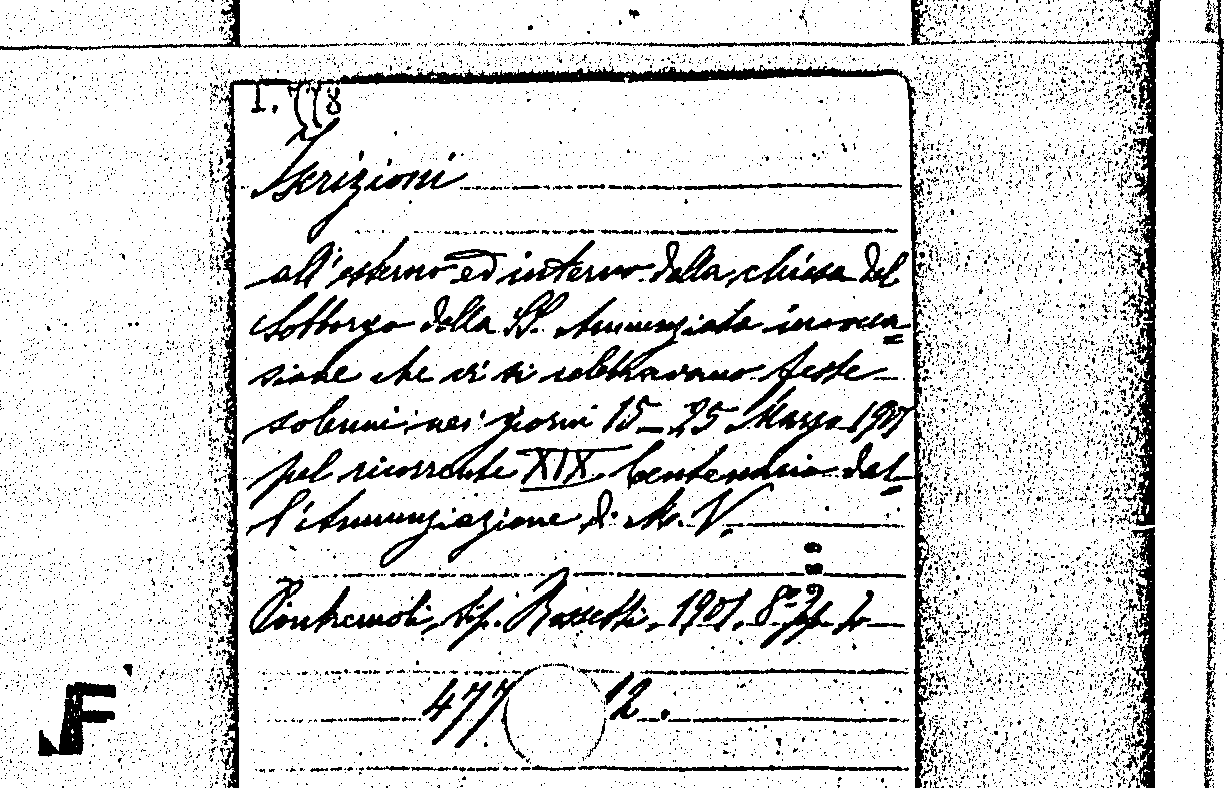 I. 778
Iscrizioni
all'esterno ed interno della chiesa del
Sobborgo della SS. Annunziata in occa=
sione che vi si celebravano feste
solenni nei giorni 15-25 Marzo 1901
pel ricorrente XIX Centenario del=
l'Annunziazione di M. V.
Pontremoli, tip. Rossetti, 1901. 8°
477 12.